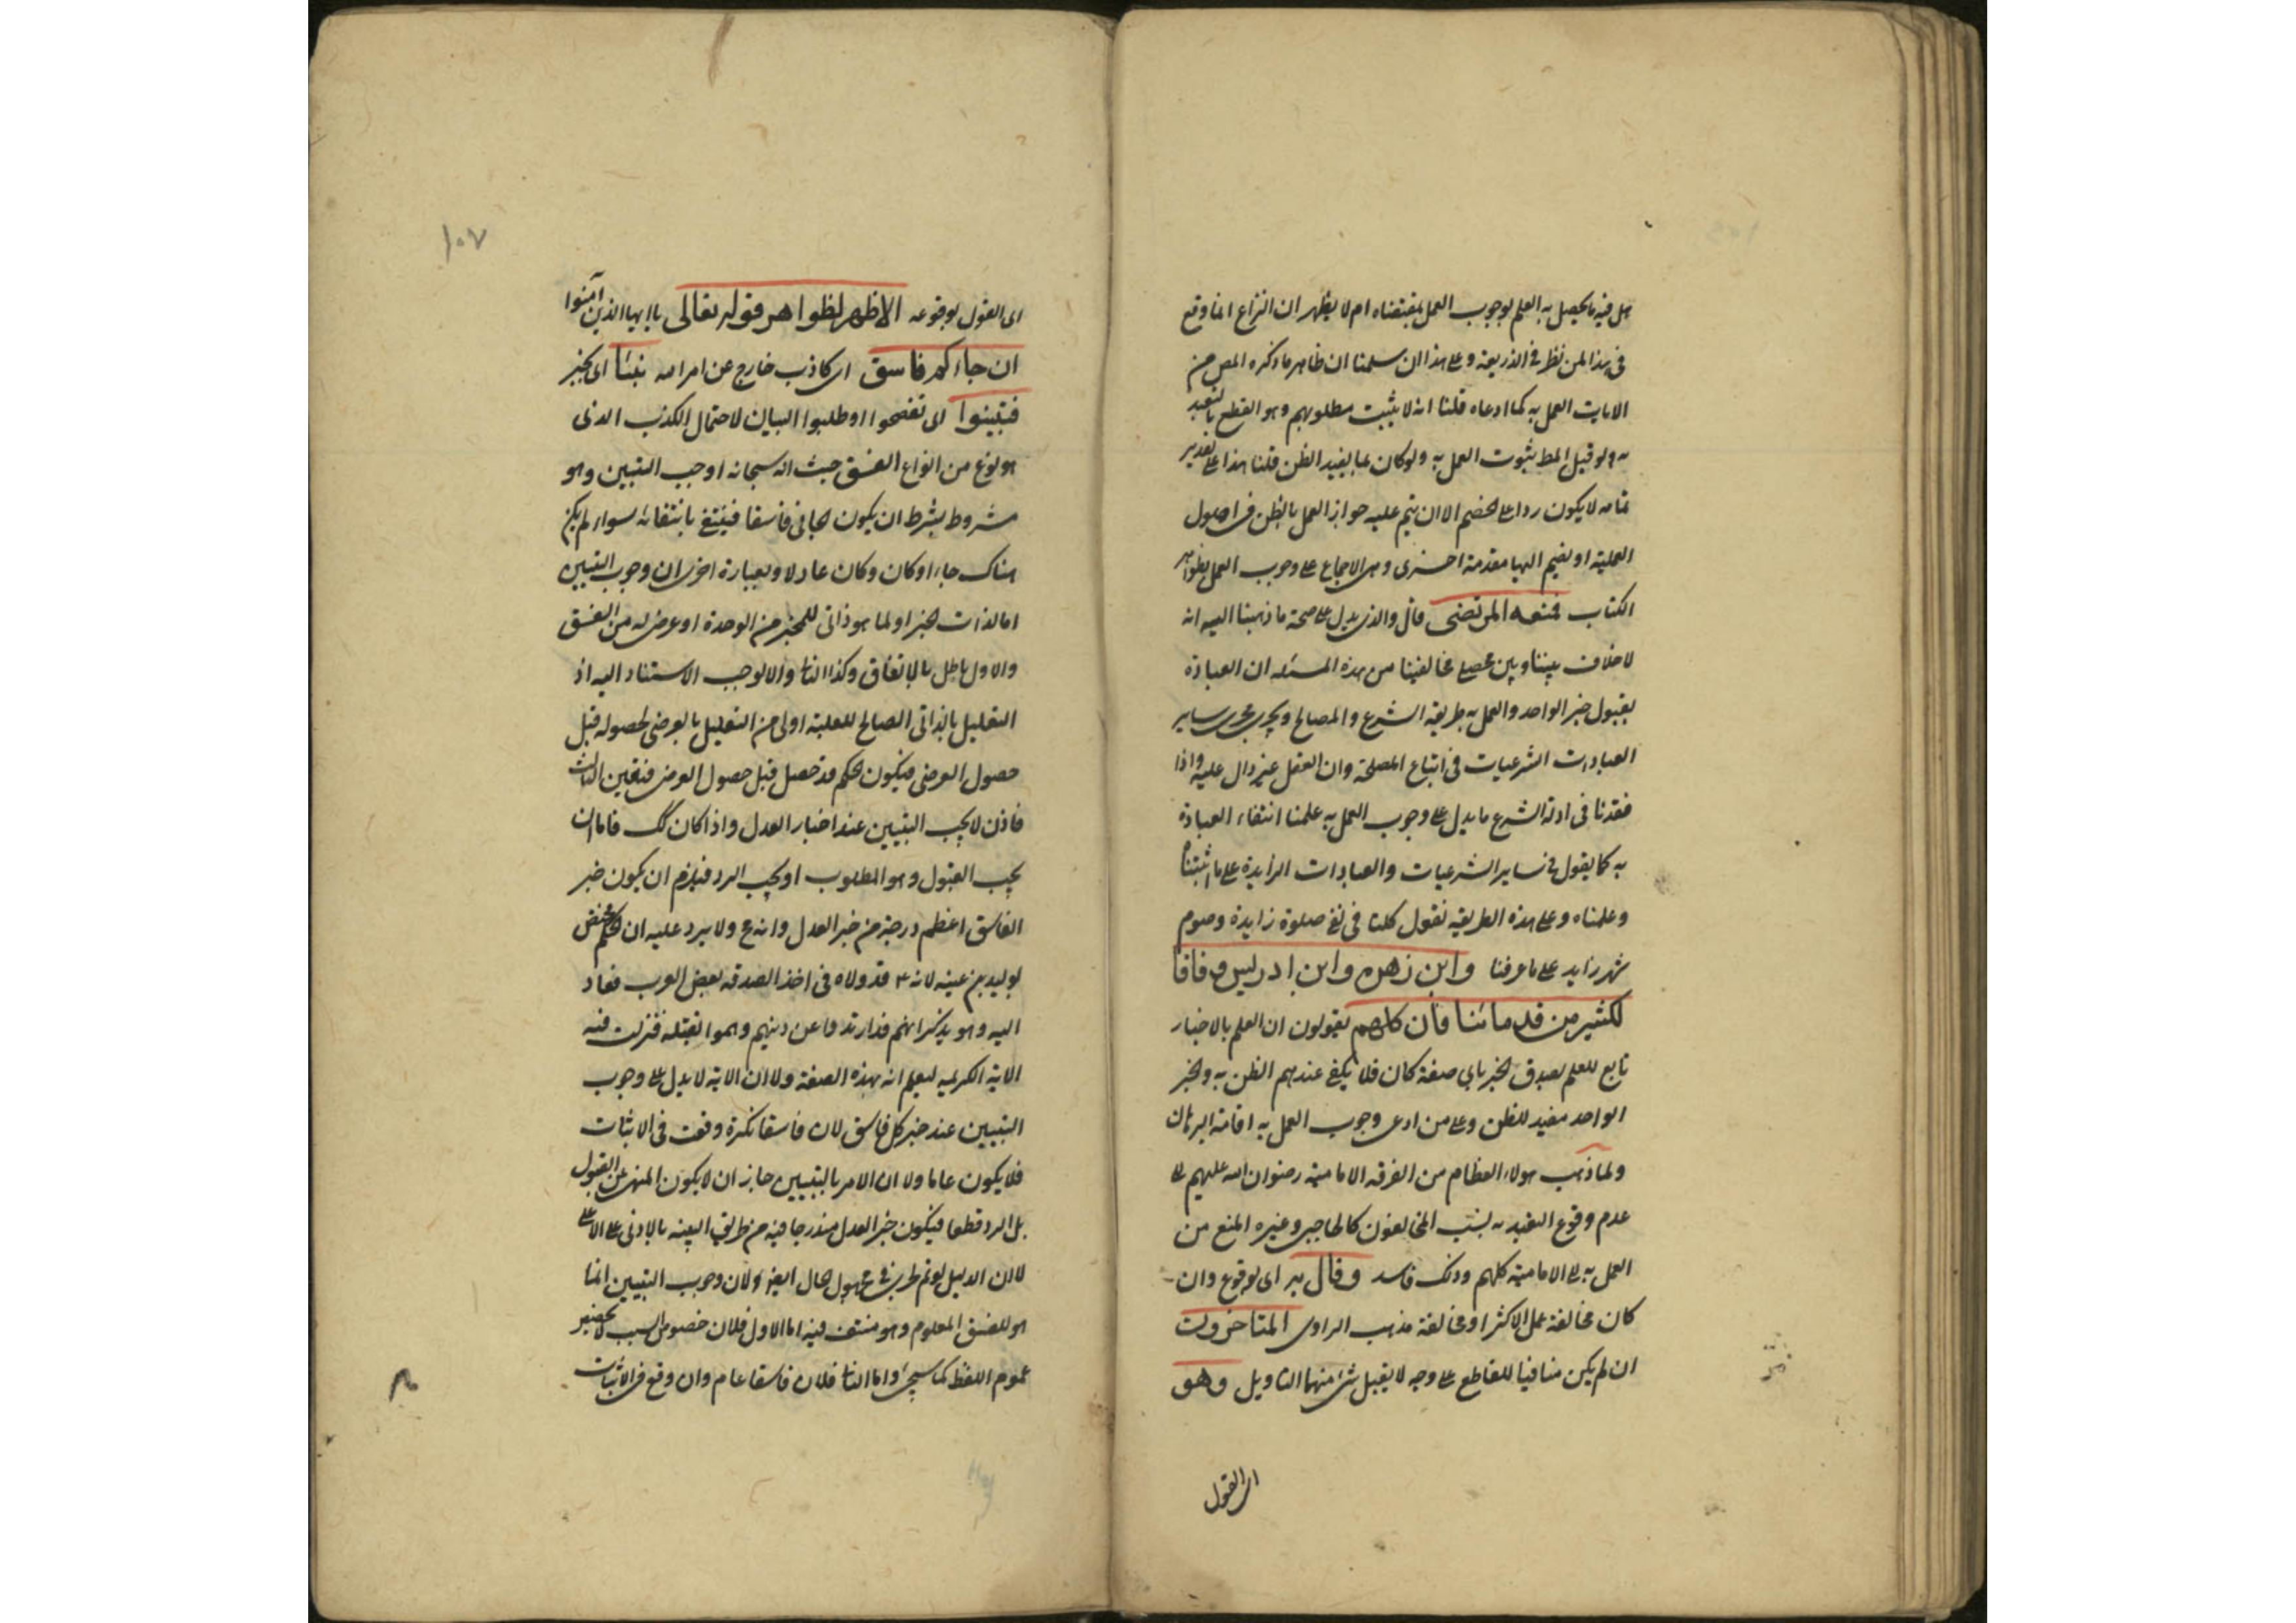 هل فيه ما يحصل به العلم بوجوب العمل بمقتضاه ام لا يظهر ان النزاع انما وقع
في هذا لمن نظر في الذريعة وعلى هذا ان سلمنا ان ظاهر ما ذكره المص من
الايات العمل به كما ادعاه قلنا انه لا يثبت مطلوبهم وهو القطع بالتعبد
به ولو قيل المط ثبوت العمل به ولو كان بما يفيد الظن قلنا هذا على تقدير
تمامه لا يكون ردا على الخصم الا ان يتم عليه جواز العمل بالظن في اصول
العملية او يضم اليها مقدمة اخرى وهي الاجماع على وجوب العمل بظواهر
الكتاب فمنعه المرتضى قال والذي يدل على صحة ما ذهبنا اليه انه
لا خلاف بيننا وبين محصلي مخالفينا من هذه المسئله ان العبادة
بقبول خبر الواحد والعمل به طريقه الشرع والمصالح ويجرى مجرى ساير
العبادات الشرعيات في اتباع المصلحة وان العقل غير دال عليه واذا
فقدنا في ادلة الشرع ما يدل على وجوب العمل به علمنا انتفاء العبادة
به كما يقول في ساير الشرعيات والعبادات الزايدة على ما اثبتناه
وعلمناه وعلى هذه الطريقه نقول كلنا في نفي صلوة زايدة وصوم
شهر زايد على ما عرفنا وابن زهره وابن ادريس وفاقا
لكثير من قدمائنا فان كلهم يقولون ان العلم بالاخبار
تابع للعلم بصدق الخبر باى صفة كان فلا يكفي عندهم الظن به والخبر
الواحد مفيد للظن وعلى من ادعى وجوب العمل به اقامة البرهان
ولما ذهب هولاء العظام من الفرقه الاماميه رضوان الله عليهم على
عدم وقوع التعبد به نسب المخالفون كالحاجبي وغيره المنع من
العمل به الى الاماميه كلهم وذلك فاسد وقال به اى بوقوع وان
كان مخالفة عمل الاكثر او مخالفة مذهب الراوى المتاخرون
ان لم يكن منافيا للقاطع على وجه لا يقبل شئ منهما التاويل وهو
اى القول
١٠٧
اى القول بوقوعه الاظهر لظواهر قوله تعالى يا ايها الذين آمنوا
ان جاءكم فاسق اى كاذب خارج عن امر الله بنبئا اى بخبر
فتبينوا اى تفحصوا او طلبوا البيان لاحتمال الكذب الذى
هو نوع من انواع الفسق حيث انه سبحانه اوجب التبين وهو
مشروط بشرط ان يكون الجائى فاسقا فينتفي بانتفائه سواء لم يكن
هناك جاء او كان وكان عادلا وبعبارة اخرى ان وجوب التبيين
اما لذات الخبر او لما هو ذاتى للمخبر من الوحدة او عرض له من الفسق
والاول باطل بالاتفاق وكذا الثانى والا لوجب الاستناد اليه اذ
التعليل بالذاتى الصالح للعلية اولى من التعليل بالعرضى لحصوله قبل
حصول العرضى فيكون الحكم قد حصل قبل حصول العرضى فتعين الثالث
فاذن لا يجب التبيين عند اخبار العدل واذا كان كك فاما ان
يجب القبول وهو المطلوب او يجب الرد فيلزم ان يكون خبر
الفاسق اعظم درجة من خبر العدل وانه مح ولا يرد عليه ان الحكم مختص
بوليد بن عينه لانه ع قد ولاه في اخذ الصدقه بعض العرب فعاد
اليه وهو يذكر انهم قد ارتدوا عن دينهم وهموا لقتله فنزلت فيه
الاية الكريمه ليعلم انه بهذه الصفة ولا ان الاية لا يدل على وجوب
التبيين عند خبر كل فاسق لان فاسقا نكرة وقعت في الاثبات
فلا يكون عاما ولا ان الامر بالتبيين جاز ان لا يكون المنهى عن القبول
بل الرد قطعا فيكون خبر العدل مندرجا فيه من طريق البينه بالادنى على الاعلى
لا ان الدليل لو تم لجرى في مجهول الحال ايضا ولان وجوب التبيين انما
هو للفسق المعلوم وهو منتف فيه اما الاول فلان خصوص السبب لا يخصص
عموم اللفظ كما سيجئ واما الثانى فلان فاسقا عام وان وقع في الاثبات